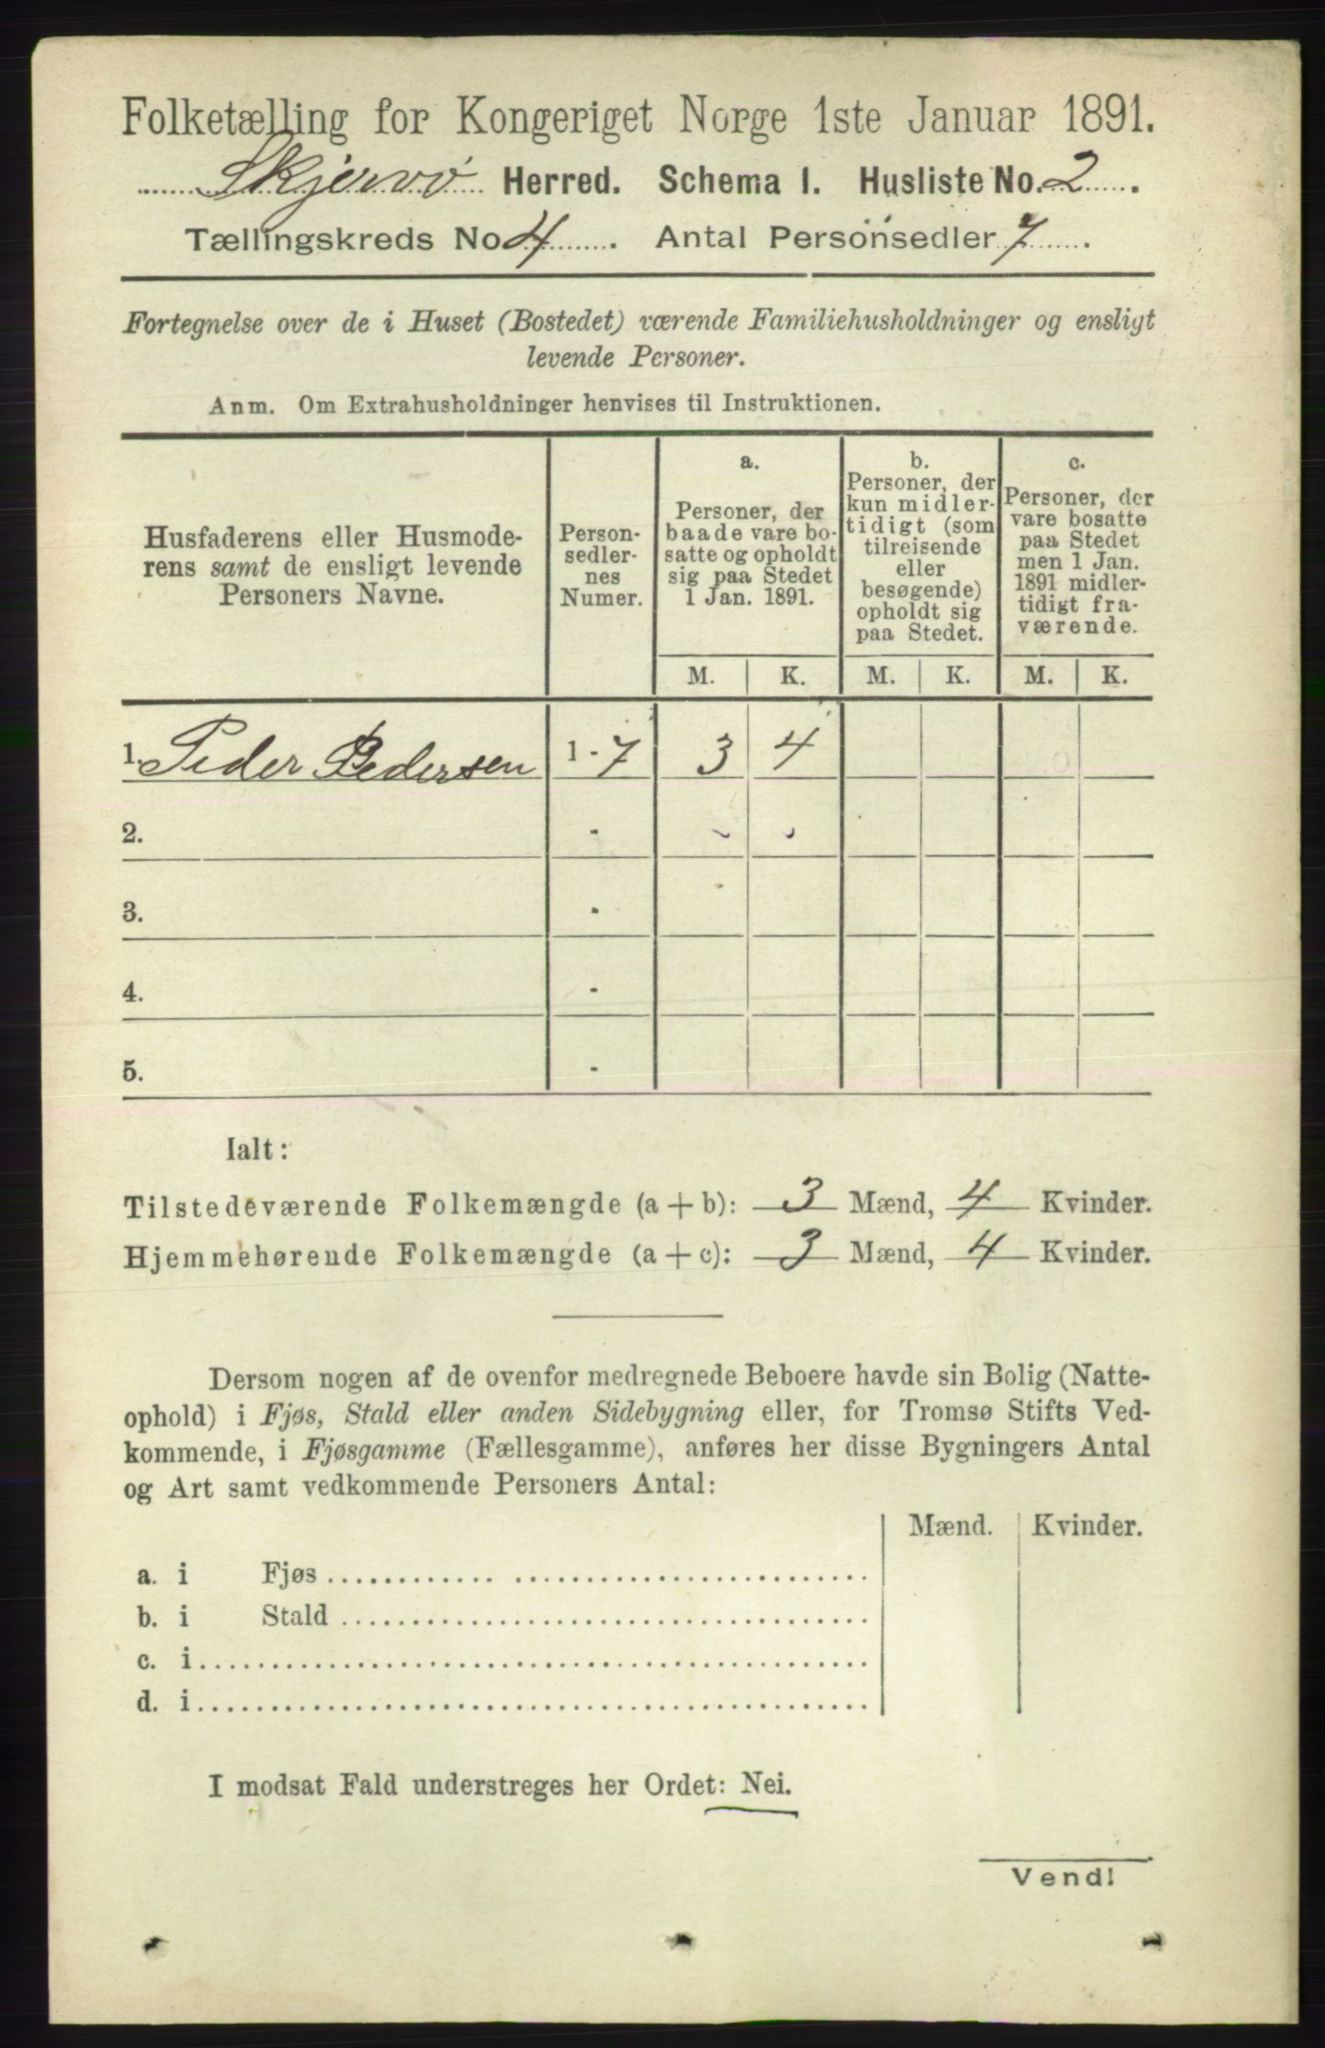 Folketælling for Kongeriget Norge 1ste Januar 1891.
Skjervø Herred. Schema 1. Husliste No. 2.
Tællingskreds No. 4. Antal Personsedler 7.
Fortegnelse over de i Huset (Bostedet) værende Familiehusholdninger og ensligt
levende Personer.
Anm. Om Extrahusholdninger henvises til Instruktionen.
Husfaderens eller Husmode-
rens samt de ensligt levende
Personers Navne.
Person-
sedler-
nes
Numer.
a.
Personer, der
baade vare bo-
satte og opholdt
sig paa Stedet
1 Jan. 1891.
b.
Personer, der
kun midler-
tidigt (som
tilreisende
eller
besøgende)
opholdt sig
paa Stedet.
c.
Personer, der
vare bosatte
paa Stedet
men 1 Jan.
1891 midler-
tidigt fra-
værende.
M. K. M. K. M. K.
1. Peder Pedersen 1 - 7 3 4
2. -
3. -
4. -
5. -
Ialt:
Tilstedeværende Folkemængde (a + b): 3 Mænd, 4 Kvinder.
Hjemmehørende Folkemængde (a + c): 3 Mænd, 4 Kvinder.
Dersom nogen af de ovenfor medregnede Beboere havde sin Bolig (Natte-
ophold) i Fjøs, Stald eller anden Sidebygning eller, for Tromsø Stifts Ved-
kommende, i Fjøsgamme (Fællesgamme), anføres her disse Bygningers Antal
og Art samt vedkommende Personers Antal:
Mænd. Kvinder.
a. i Fjøs
b. i Stald
c. i
d. i
I modsat Fald understreges her Ordet: Nei.
Vend!